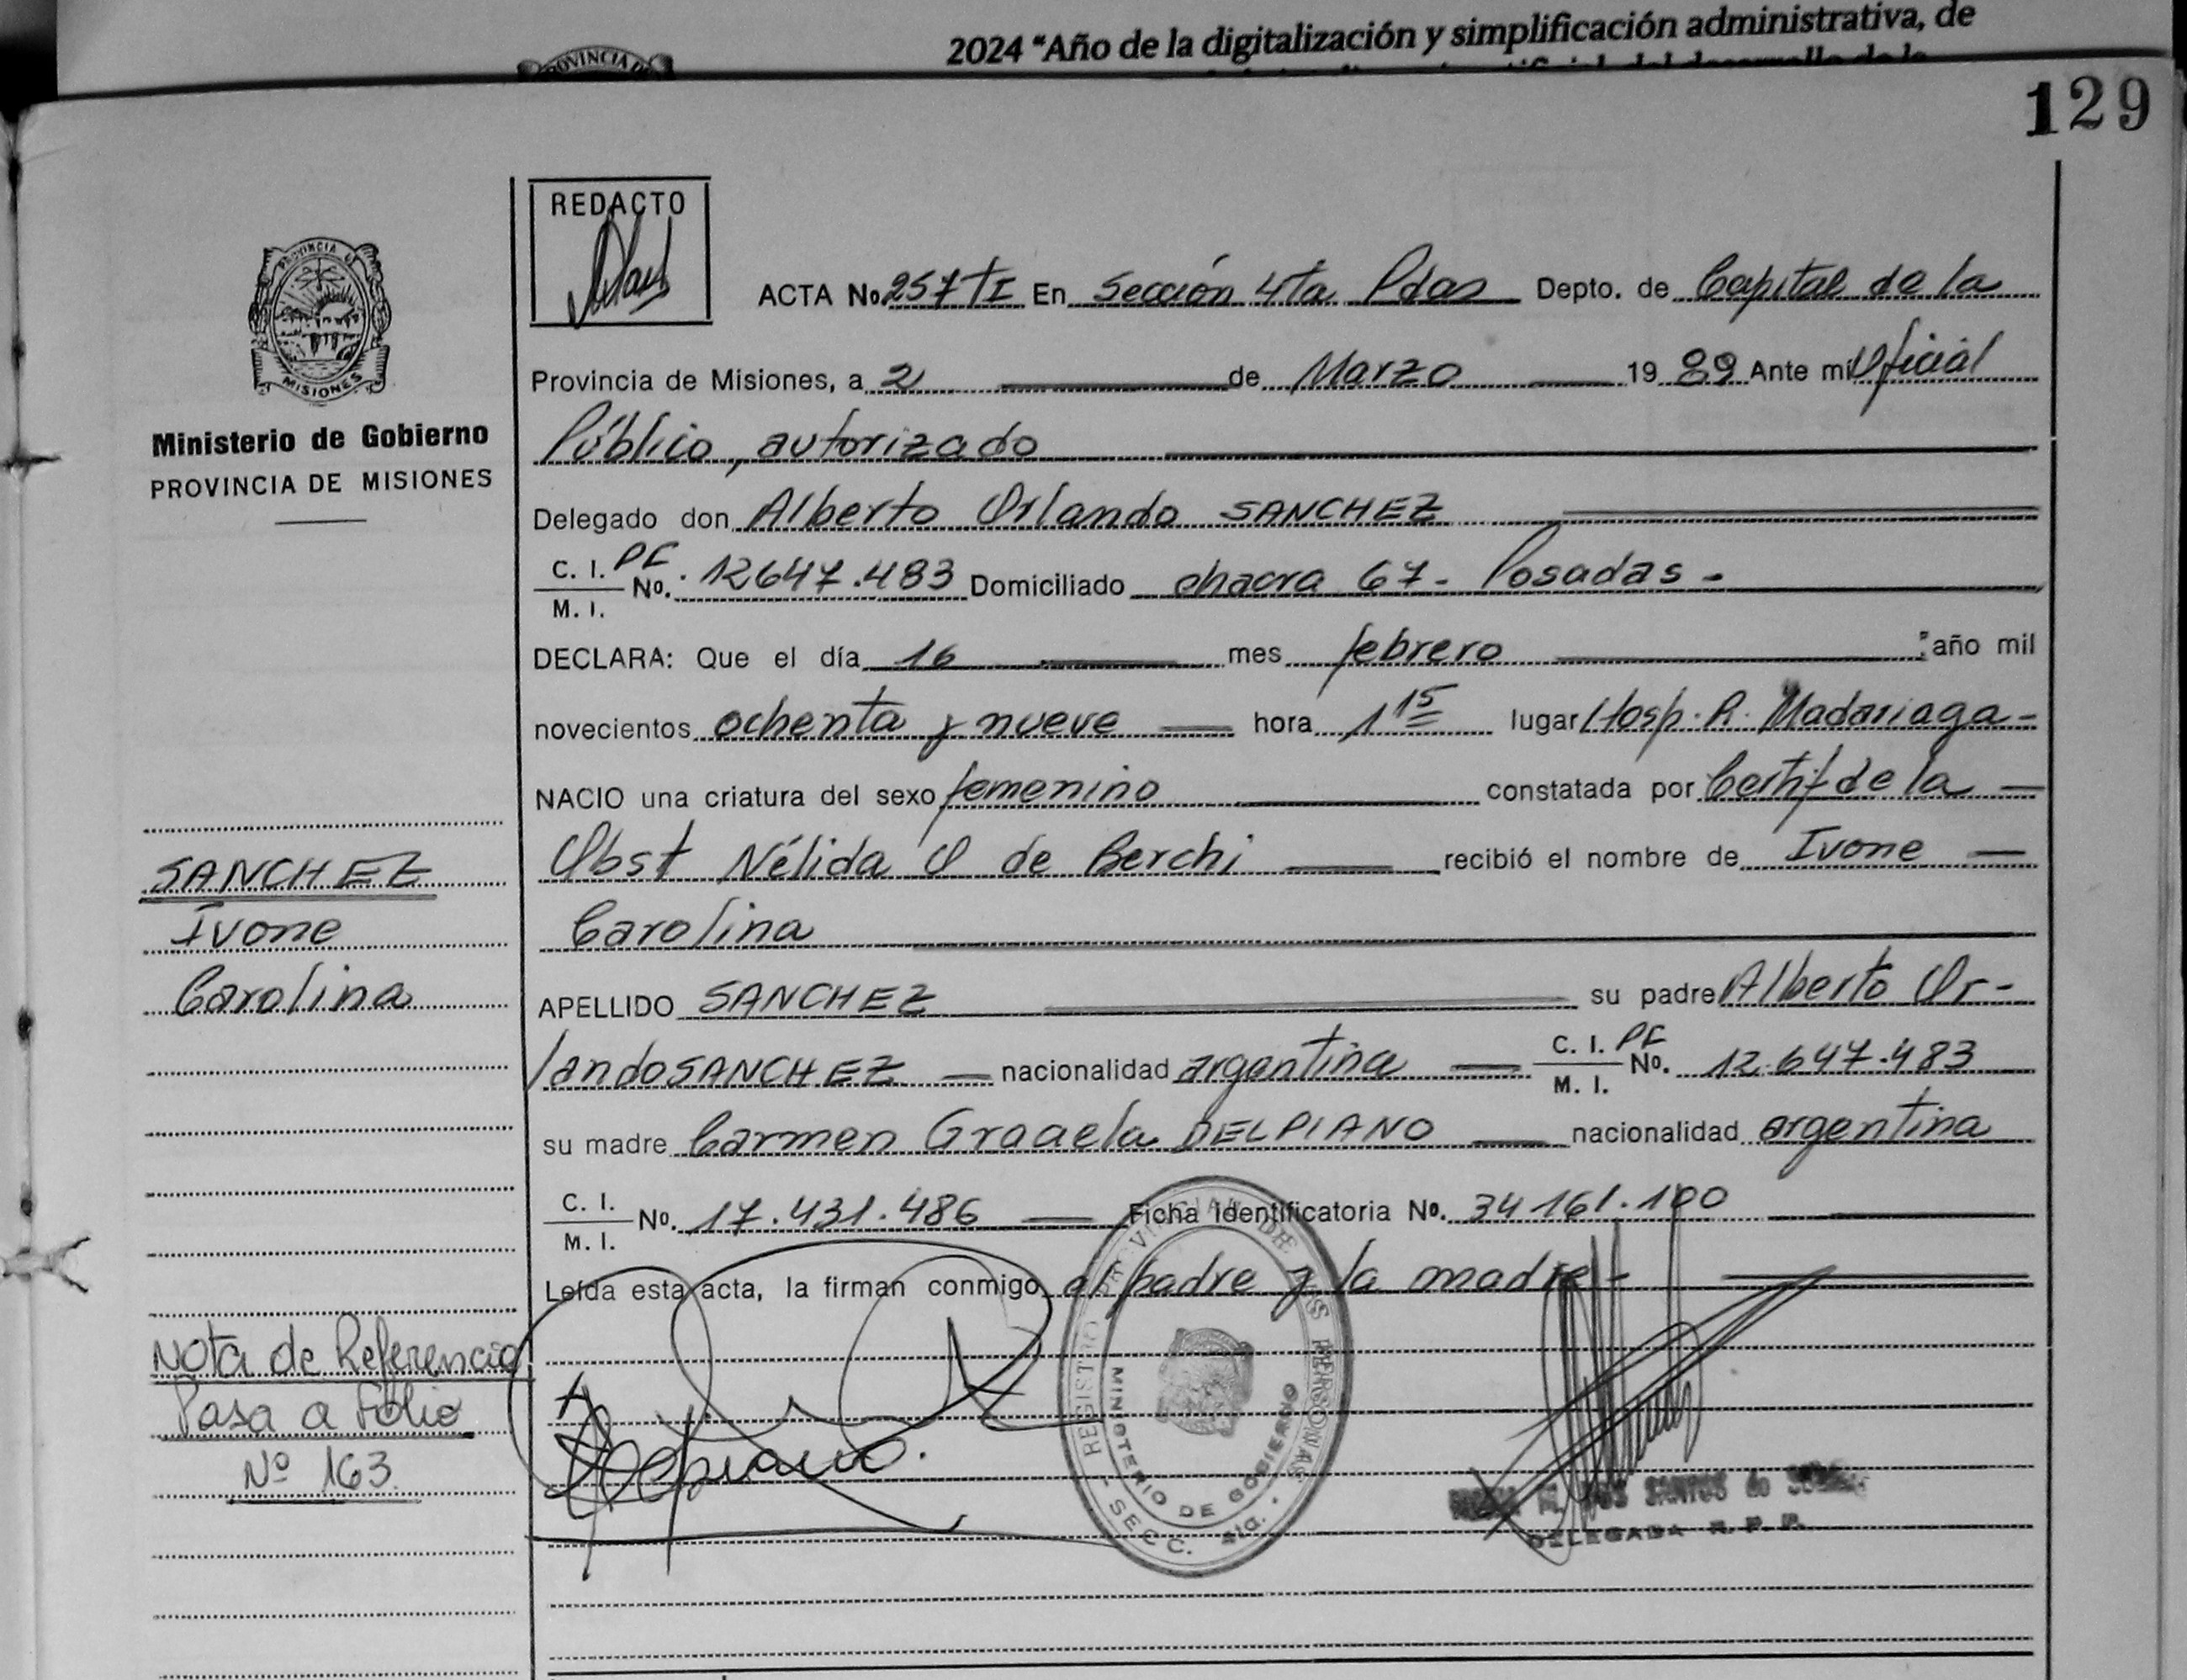 2024 “Año de la digitalización y simplificación administrativa, de
129
PROVINCIA DE
MISIONES
Ministerio de Gobierno
PROVINCIA DE MISIONES
REDACTO
ACTA No 257 TI En Sección 4ta Pdas Depto. de Capital de la
Provincia de Misiones, a 2 de Marzo 19 89 Ante mi Oficial
Público, autorizado
Delegado don Alberto Orlando SANCHEZ
C. I. PF
M. I. No. 12647.483 Domiciliado chacra 67 - Posadas -
DECLARA: Que el día 16 mes febrero año mil
novecientos ochenta y nueve hora 1 15 lugar Hosp. R. Madariaga -
NACIO una criatura del sexo femenino constatada por Certif de la
Obst Nélida O de Berchi recibió el nombre de Ivone
Carolina
APELLIDO SANCHEZ su padre Alberto Or-
lando SANCHEZ nacionalidad argentina C. I. PF
M. I. No. 12.647.483
su madre Carmen Graciela DELPIANO nacionalidad argentina
C. I.
M. I. No. 17.431.486 Ficha Identificatoria No. 34 161.100
Leída esta acta, la firman conmigo, el padre y la madre -
SANCHEZ
Ivone
Carolina
Nota de Referencia
Pasa a Folio
Nº 163.
Delpiano.
REGISTRO PROVINCIAL DE LAS PERSONAS
MINISTERIO DE GOBIERNO
SECC. 4ta.
M. DOS SANTOS de
DELEGADA R. P. P.